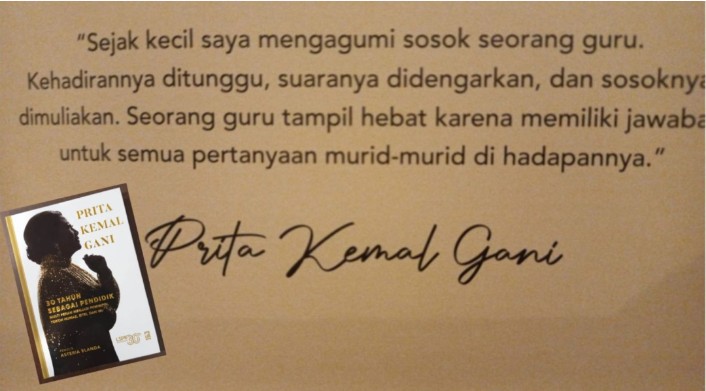 “Sejak kecil saya mengagumi sosok seorang guru.
Kehadirannya ditunggu, suaranya didengarkan, dan sosoknya
dimuliakan. Seorang guru tampil hebat karena memiliki jawaba
untuk semua pertanyaan murid-murid di hadapannya.”
Prita Kemal Gani
PRITA
KEMAL
GANI
30 TAHUN
SEBAGAI PENDIDIK
ASTERIA ELANDA